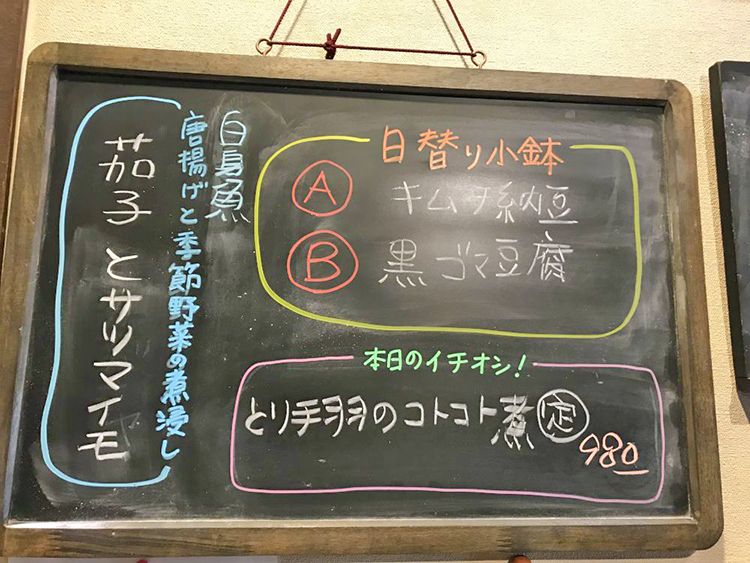 日替り小鉢
Ⓐ キムチ納豆
Ⓑ 黒ゴマ豆腐
本日のイチオシ!
とり手羽のコトコト煮 定
980
白身魚
唐揚げと季節野菜の煮浸し
茄子とサツマイモ